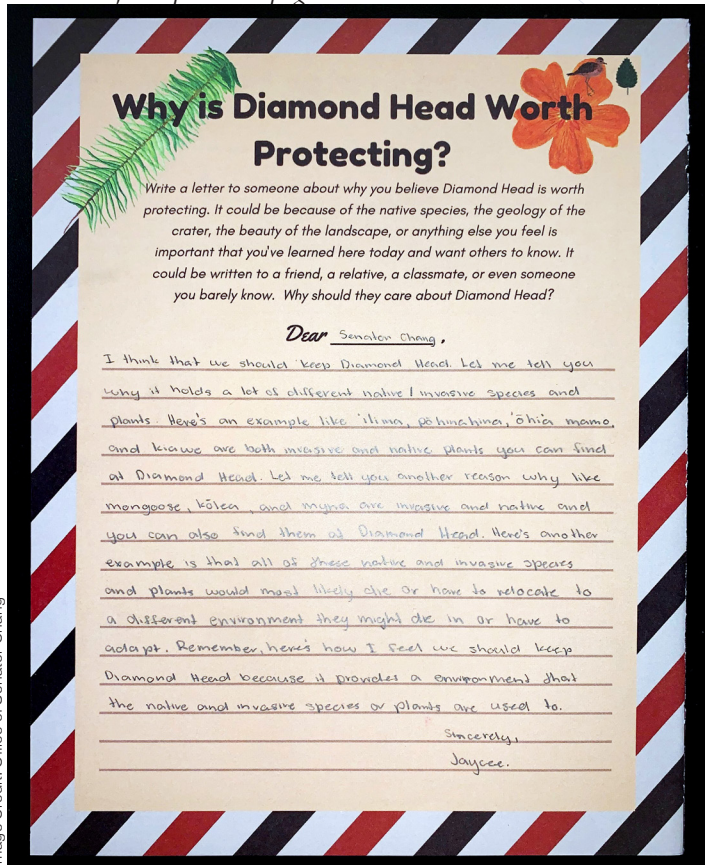 Why is Diamond Head Worth
Protecting?
Write a letter to someone about why you believe Diamond Head is worth
protecting. It could be because of the native species, the geology of the
crater, the beauty of the landscape, or anything else you feel is
important that you've learned here today and want others to know. It
could be written to a friend, a relative, a classmate, or even someone
you barely know. Why should they care about Diamond Head?
Dear Senator Chang,
I think that we should keep Diamond Head. Let me tell you
why it holds a lot of different native / invasive species and
plants. Here's an example like 'ilima, pōhinahina, 'ōhi'a mamo,
and kiawe are both invasive and native plants you can find
at Diamond Head. Let me tell you another reason why like
mongoose, kōlea, and myna are invasive and native and
you can also find them at Diamond Head. Here's another
example is that all of these native and invasive species
and plants would most likely die or have to relocate to
a different environment they might die in or have to
adapt. Remember, here's how I feel we should keep
Diamond Head because it provides a environment that
the native and invasive species or plants are used to.
Sincerely,
Jaycee.